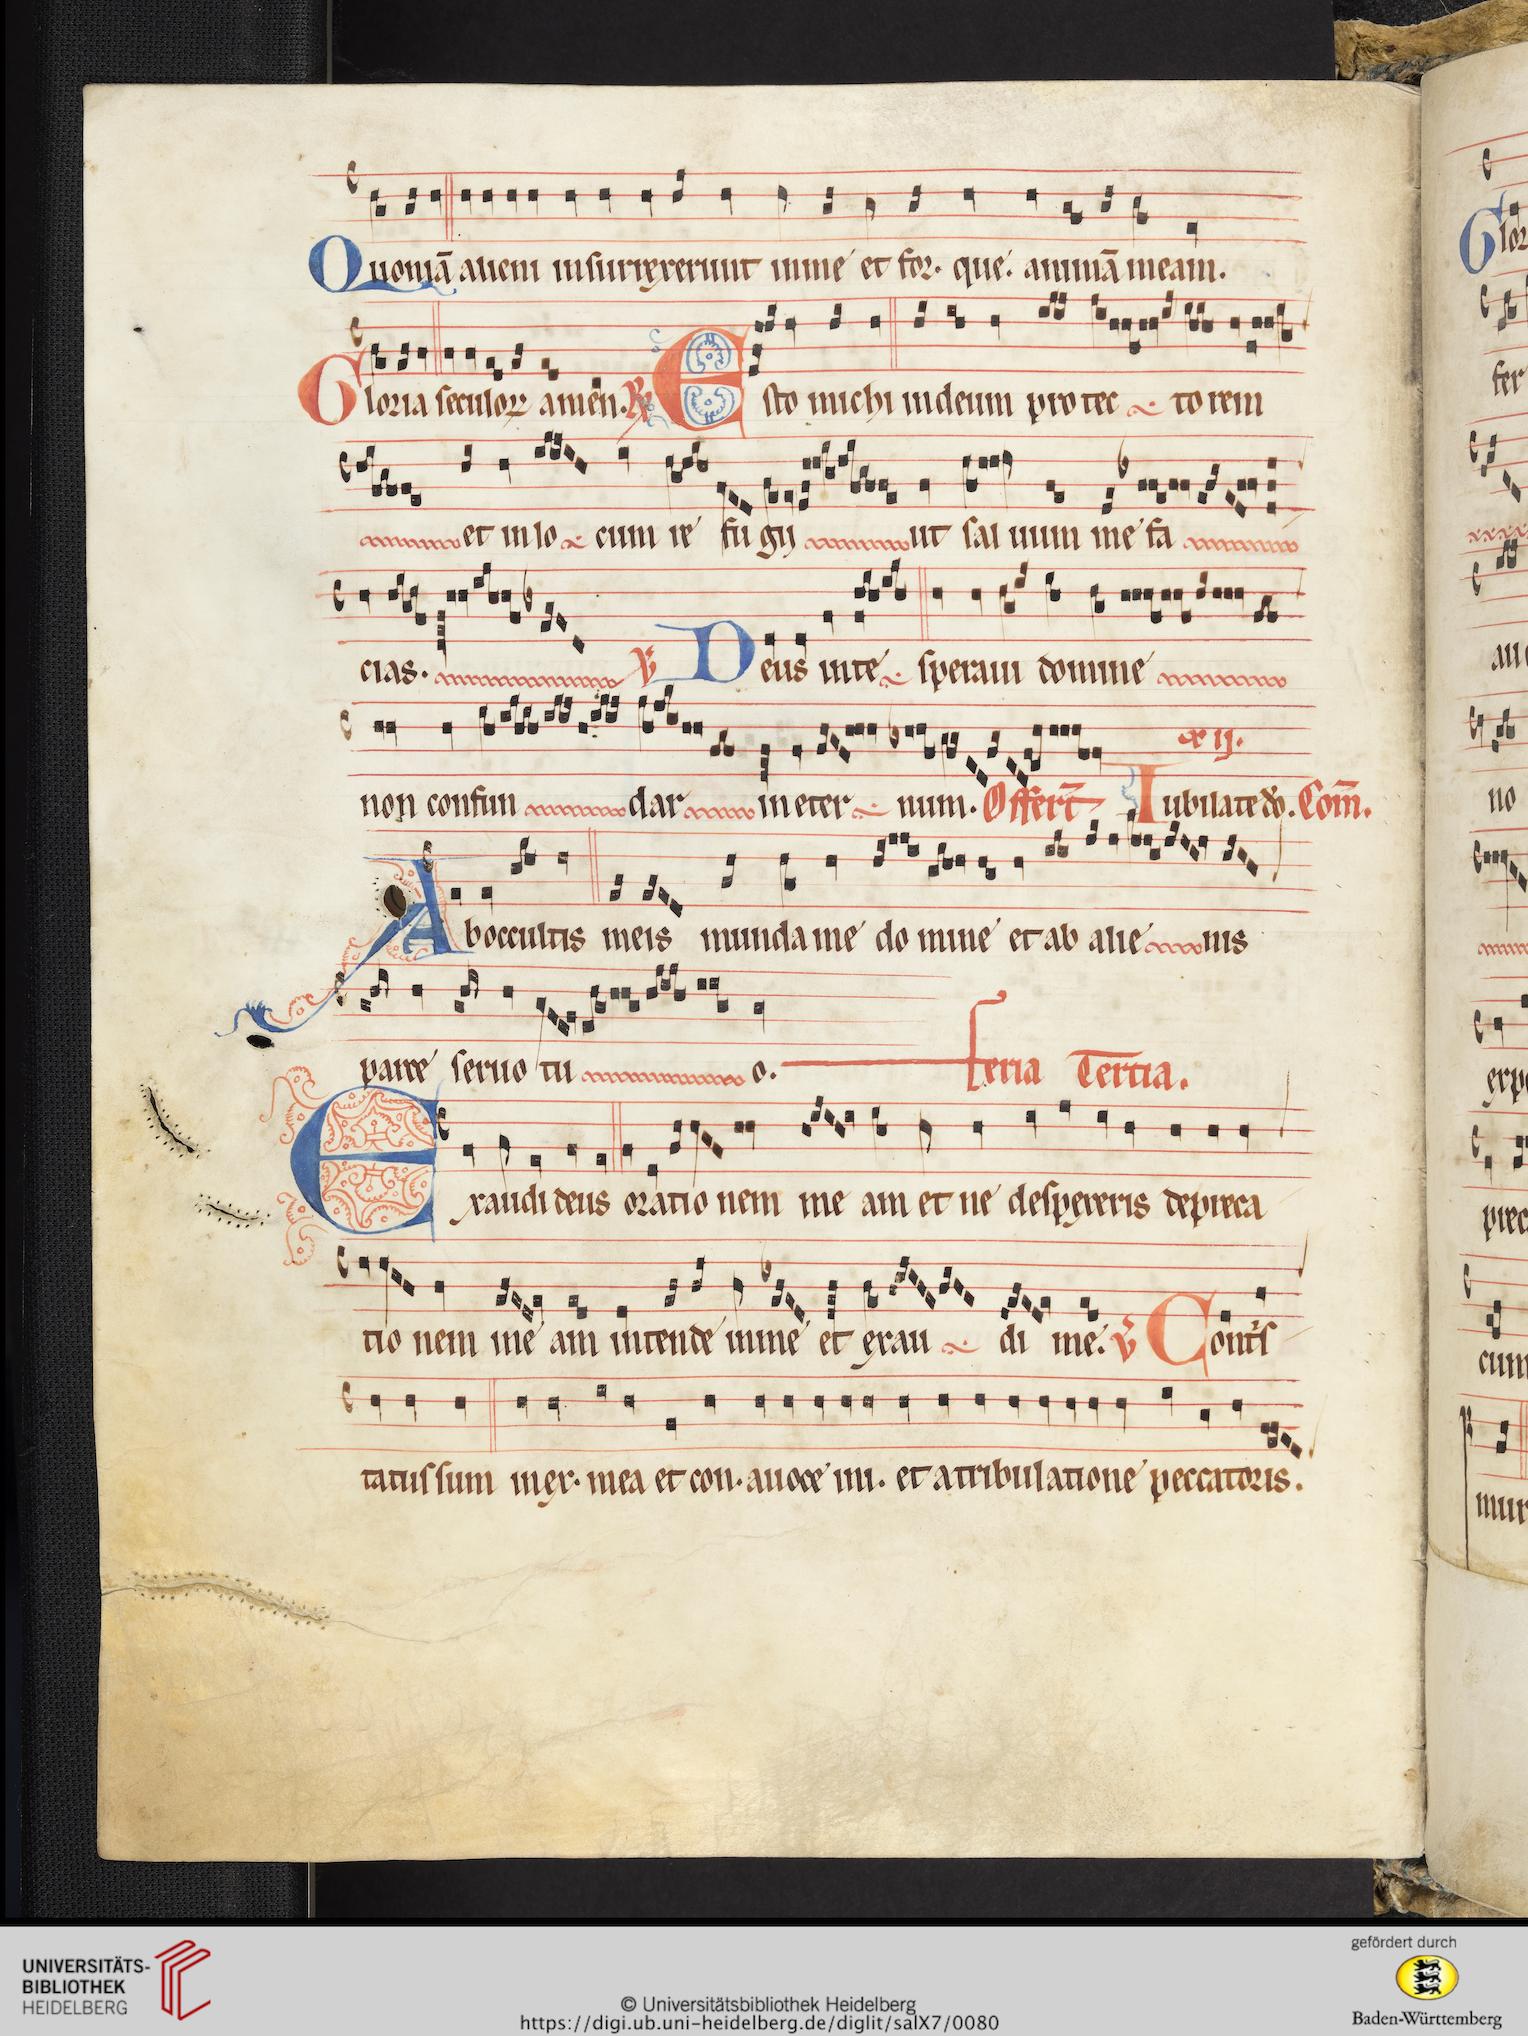 Quoniā alieni insurrexerunt inme et for· que· animā meam.
Gloria seculoꝝ amen. ℟ Esto michi indeum protec torem
et in lo cum re fugij ut sal uum me fa
cias. ℣ Deus inte speraui domine
xx ij.
non confun dar in eter num. Offert̄ Iubilate do. Com̄.
Ab occultis meis munda me do mine et ab alie nis
parce seruo tu o. Feria Tertia.
Exaudi deus oratio nem me am et ne despexeris depreca
tio nem me am intende mine et exau di me. ℣ Cont͛s
tatus sum inex· mea et con· auoce ini· et atribulatione peccatoris.
Glor
fer
au
no
exp
prec
cum
mur
UNIVERSITÄTS-
BIBLIOTHEK
HEIDELBERG
© Universitätsbibliothek Heidelberg
https://digi.ub.uni-heidelberg.de/diglit/salX7/0080
gefördert durch
Baden-Württemberg